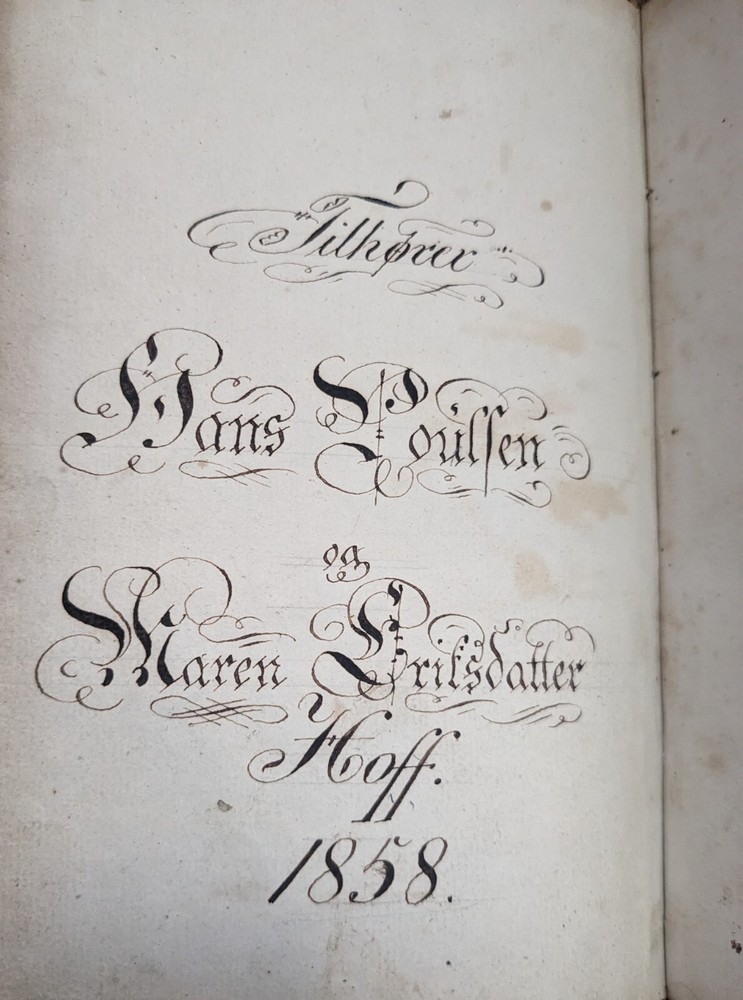 Tilhører
Hans Poulsen
og
Maren Eriksdatter
Hoff.
1858.